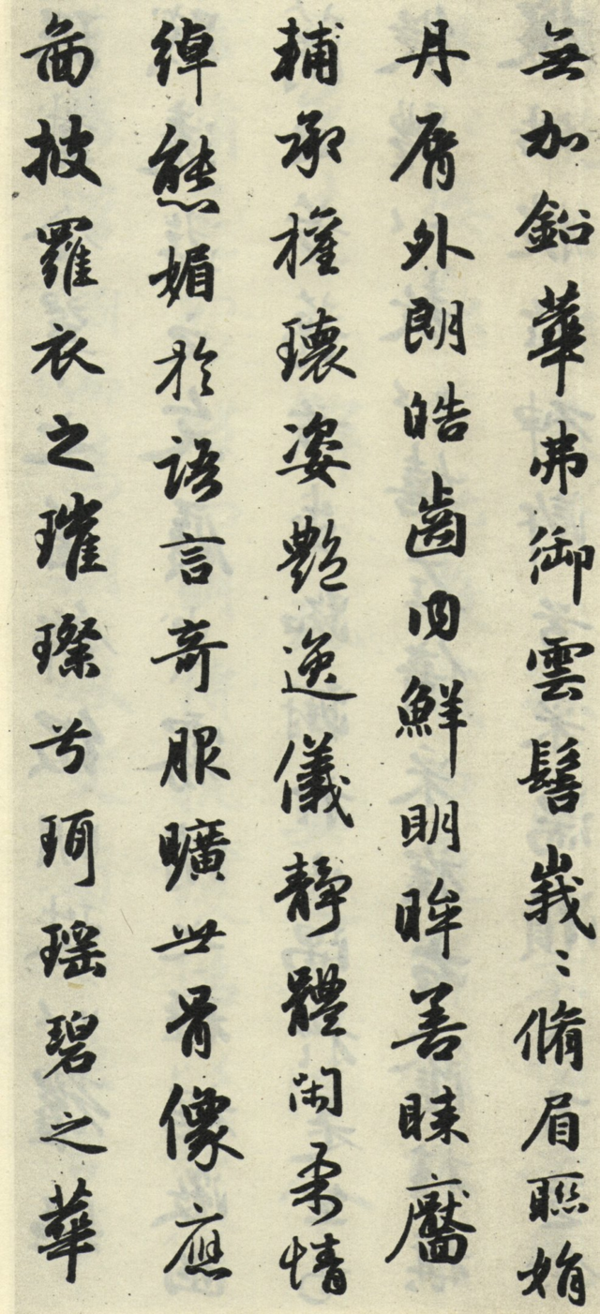 無加鉛華弗御雲髻峩〻脩眉聯娟
丹脣外朗皓齒内鮮明眸善睞靨
輔承權瓌姿艶逸儀靜體閑柔情
綽態媚於語言奇服曠世骨像應
圖披羅衣之璀璨兮珥瑶碧之華